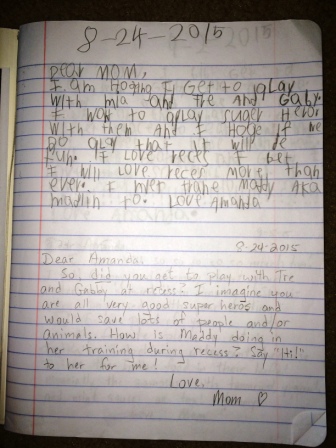 8-24-2015
Dear MOM,
I am Hoping I Get to play
With mia and Tre and GaBy.
I wont to play super Heros
With them And I Hope if we
Do play that it will be
Fun. I Love reces I bet
I Will Love reces More than
ever. I Love Amanda
8-24-2015
Dear Amanda,
So, did you get to play with Tre
and Gabby at recess? I imagine you
are all very good super heros and
would save lots of people and/or
animals. How is Maddy doing in
her training during recess? Say "Hi!"
to her for me!
Love,
Mom ♡